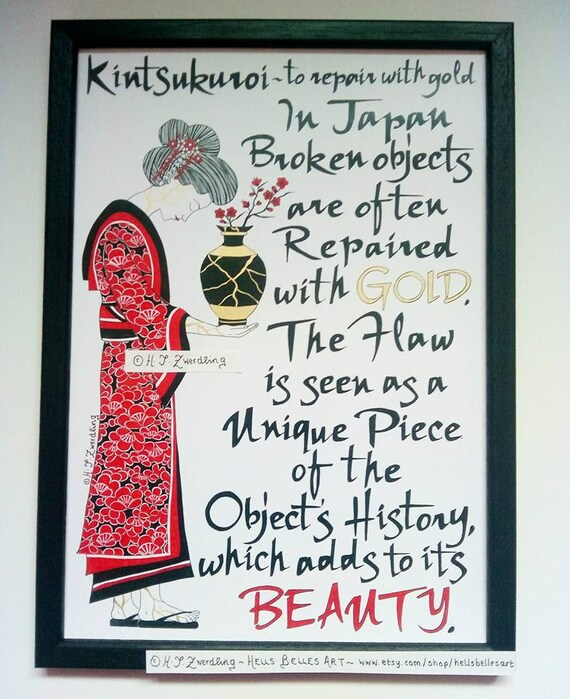 Kintsukuroi ~ to repair with gold
In Japan
Broken objects
are often
Repaired
with GOLD.
The Flaw
is seen as a
Unique Piece
of the
Object's History,
which adds to its
BEAUTY.
© H S Zwerdling
© H S Zwerdling
© H. S Zwerdling ~ HELLS BELLES ART ~ www.etsy.com/shop/hellsbellesart